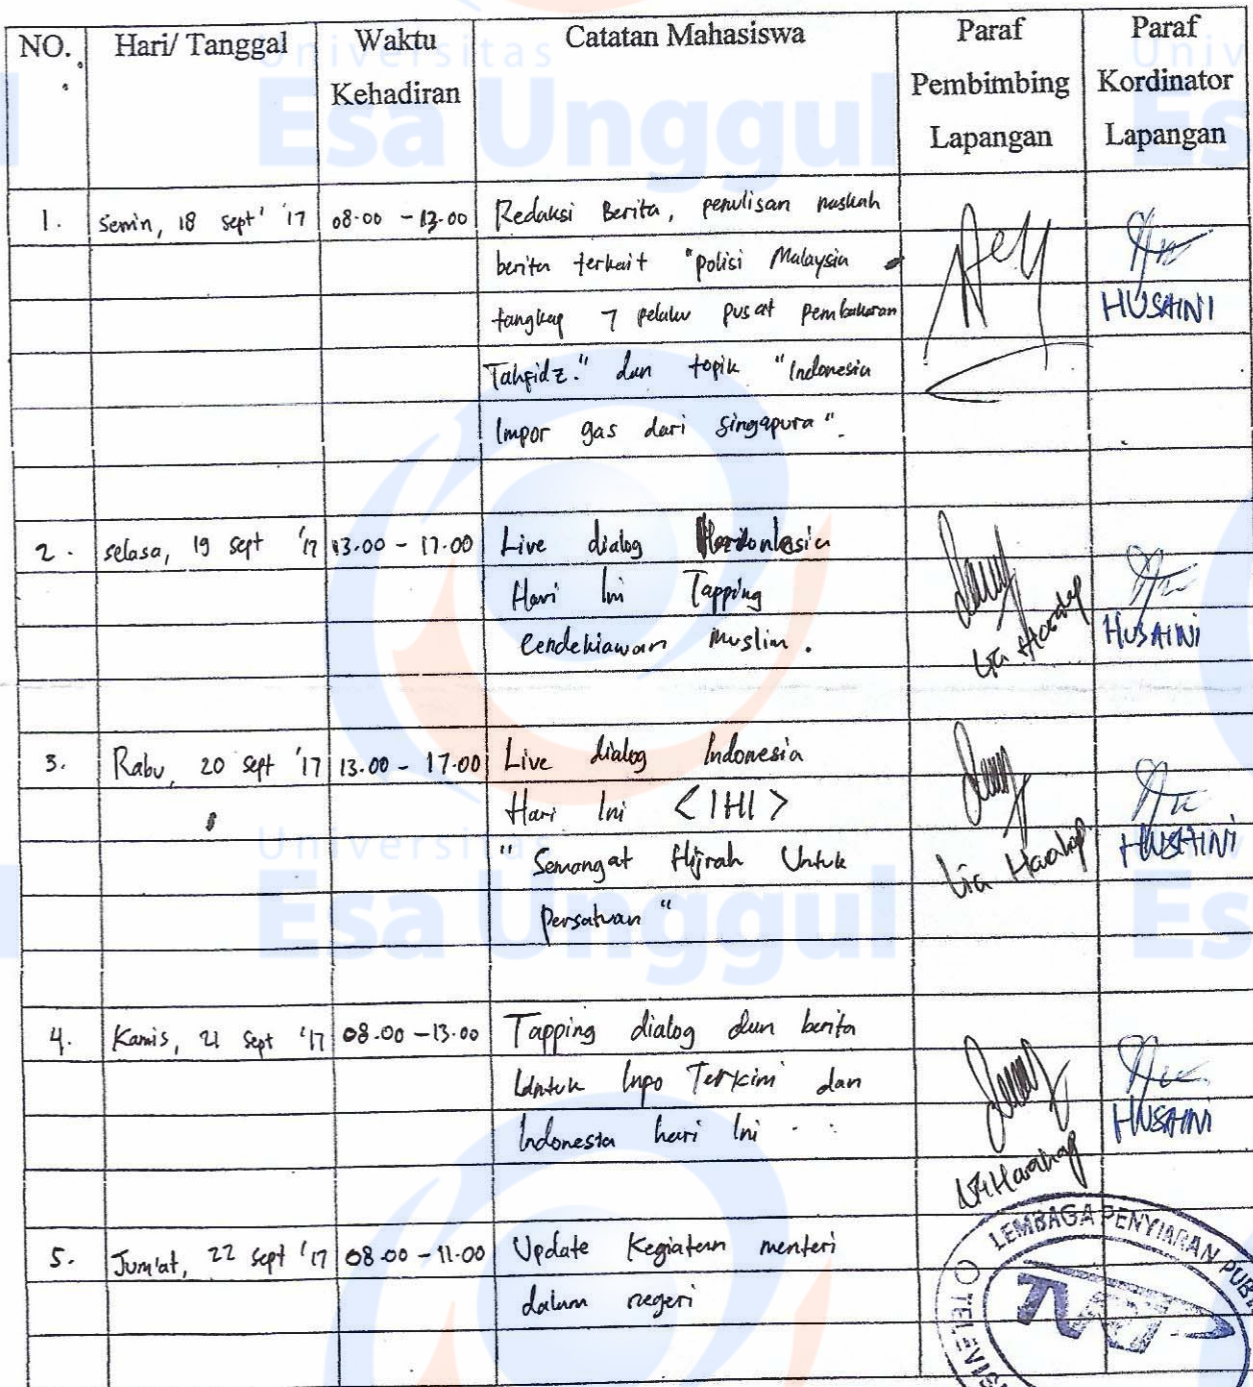 NO. Hari/ Tanggal Waktu Kehadiran Catatan Mahasiswa Paraf Pembimbing Lapangan Paraf Kordinator Lapangan
1. Senin, 18 sept' '17 08.00 - 13.00 Redaksi Berita, penulisan naskah
berita terkait "polisi Malaysia
tangkap 7 pelaku pusat pembakaran
HUSAINI
Tahfidz." dan topik "Indonesia
Impor gas dari Singapura".
2. selasa, 19 sept '17 13.00 - 17.00 Live dialog
Hari Ini Tapping
Cendekiawan Muslim.
Lia Harahap HUSAINI
3. Rabu, 20 sept '17 13.00 - 17.00 Live dialog Indonesia
Hari Ini <IHI>
"Semangat Hijrah Untuk
Persatuan"
Lia Harahap HUSAINI
4. Kamis, 21 sept '17 08.00 - 13.00 Tapping dialog dan berita
Untuk Info Terkini dan
Indonesia hari Ini
Lia Harahap HUSAINI
5. Jum'at, 22 sept '17 08.00 - 11.00 Update Kegiatan menteri
dalam negeri
LEMBAGA PENYIARAN PUB
TELEVIS
TVRI
Universitas
Esa Unggul
Universitas
Esa Unggul